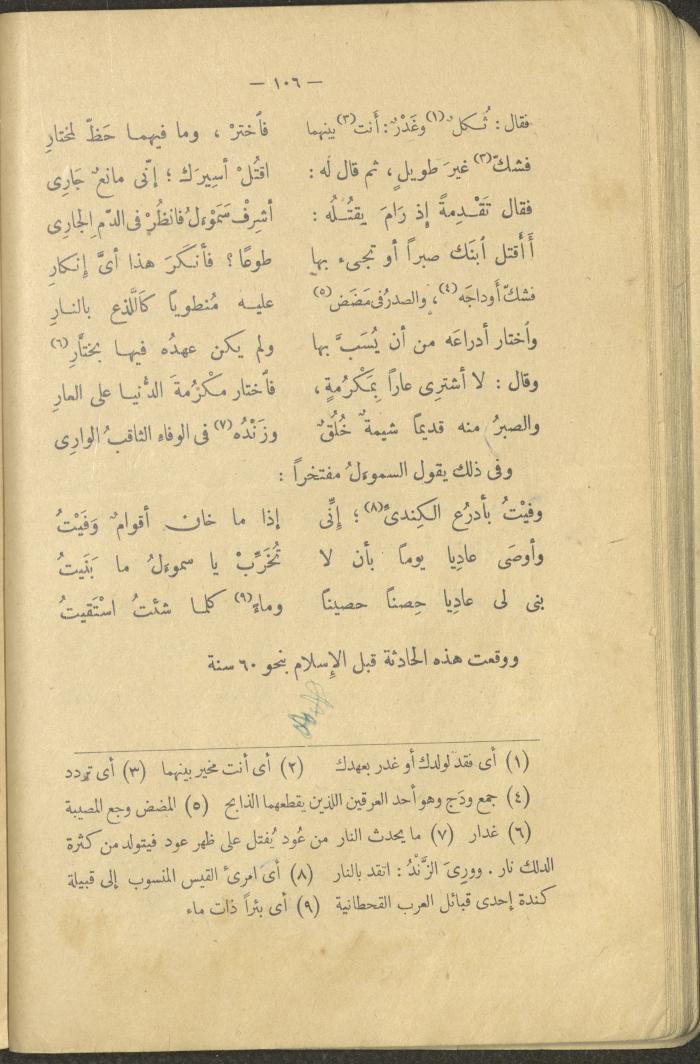 — ١٠٦ —
فقال : ثُكلٌ (١) وغَدْرٌ : أَنت (٢) بينهما فاَختَرْ ، وما فيهما حَظٌّ لمختارِ
فشكَّ (٣) غيرَ طويلٍ ، ثم قال لَه : اقتُلْ أسِيرَك ؛ إنّى مانعٌ جَارِى
فقال تَقْدِمةً إذ رَامَ يقتُلُه : أشرِفْ سَمَوْءَلُ فانظُرْ فى الدّمِ الجارِى
أَأَقتل اُبنَك صبراً أو تجىء بها طوعًا ؟ فأنكَرَ هذا أىَّ إِنكارِ
فشكَّ أَوداجَه (٤) ، والصدرُ فى مَضَضٍ (٥) عليه مُنطويًا كاَلَّذعِ بالنارِ
واَختار أدراعَه من أن يُسَبَّ بها ولم يكن عهدُه فيها بختَّارِ (٦)
وقال : لا أشترِى عاراً بِمَكْرُمةٍ ، فاَختار مكْرُمةَ الدُّنيا على العارِ
والصبرُ منه قديمًا شيمةٌ خُلُقٌ وزَنْدُه (٧) فى الوفاء الثاقبُ الوارِى
وفى ذلك يقول السموءلُ مفتخراً :
وفيْتُ بأدرُعِ الكِندىِّ (٨) ؛ إِنِّى إذا ما خان أقوامٌ وَفَيْتُ
وأوصَى عادِيا يومًا بأن لا تُخَرِّبْ يا سموءلُ ما بَنَيتُ
بنى لى عادِيا حِصنًا حصينًا وماءً (٩) كلما شئتُ استَقيتُ
ووقعت هذه الحادثة قبل الإِسلام بنحو ٦٠ سنة
(١) أى فقد لولدك أو غدر بعهدك (٢) أى أنت مخير بينهما (٣) أى تردد
(٤) جمع ودَج وهو أحد العرقين اللذين يقطعهما الذابح (٥) المضض وجع المصيبة
(٦) غدار (٧) ما يحدث النار من عُود يُفتل على ظهر عود فيتولد من كثرة
الدلك نار . وورِىَ الزَّنْدُ : اتقد بالنار (٨) أى امرئ القيس المنسوب إلى قبيلة
كندة إحدى قبائل العرب القحطانية (٩) أى بئراً ذات ماء